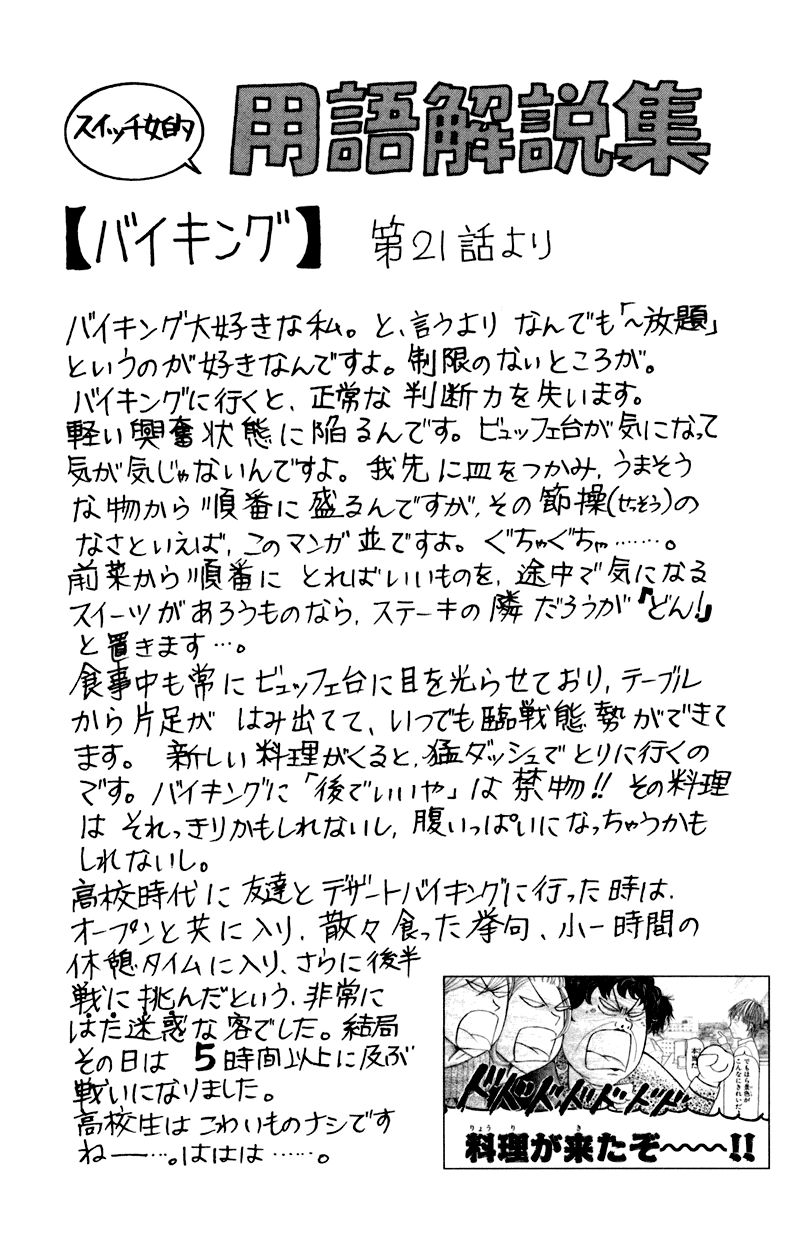 スイッチ女的
用語解説集
【バイキング】 第21話より
バイキング大好きな私。と、言うより なんでも「〜放題」
というのが好きなんですよ。制限のないところが。
バイキングに行くと、正常な判断力を失います。
軽い興奮状態に陥るんです。ビュッフェ台が気になって
気が気じゃないんですよ。我先に皿をつかみ、うまそう
な物から順番に盛るんですが、その節操(せっそう)の
なさといえば、このマンガ並ですよ。ぐちゃぐちゃ……。
前菜から順番に とればいいものを、途中で気になる
スイーツがあろうものなら、ステーキの隣だろうが『どん!』
と置きます…。
食事中も常にビュッフェ台に目を光らせており、テーブル
から片足が はみ出てて、いつでも臨戦態勢ができて
ます。 新しい料理がくると、猛ダッシュでとりに行くの
です。バイキングに「後でいいや」は禁物!! その料理
は それっきりかもしれないし、腹いっぱいになっちゃうかも
しれないし。
高校時代に友達とデザートバイキングに行った時は、
オープンと共に入り、散々食った挙句、小一時間の
休憩タイムに入り、さらに後半
戦に挑んだという、非常に
はた迷惑な客でした。結局
その日は 5時間以上に及ぶ
戦いになりました。
高校生はこわいものナシです
ね—…。ははは……。
でもほら景色が
こんなにきれいだ
本当だ
ドドドドドドド
料理が来たぞ〜〜〜!!
りょうり き